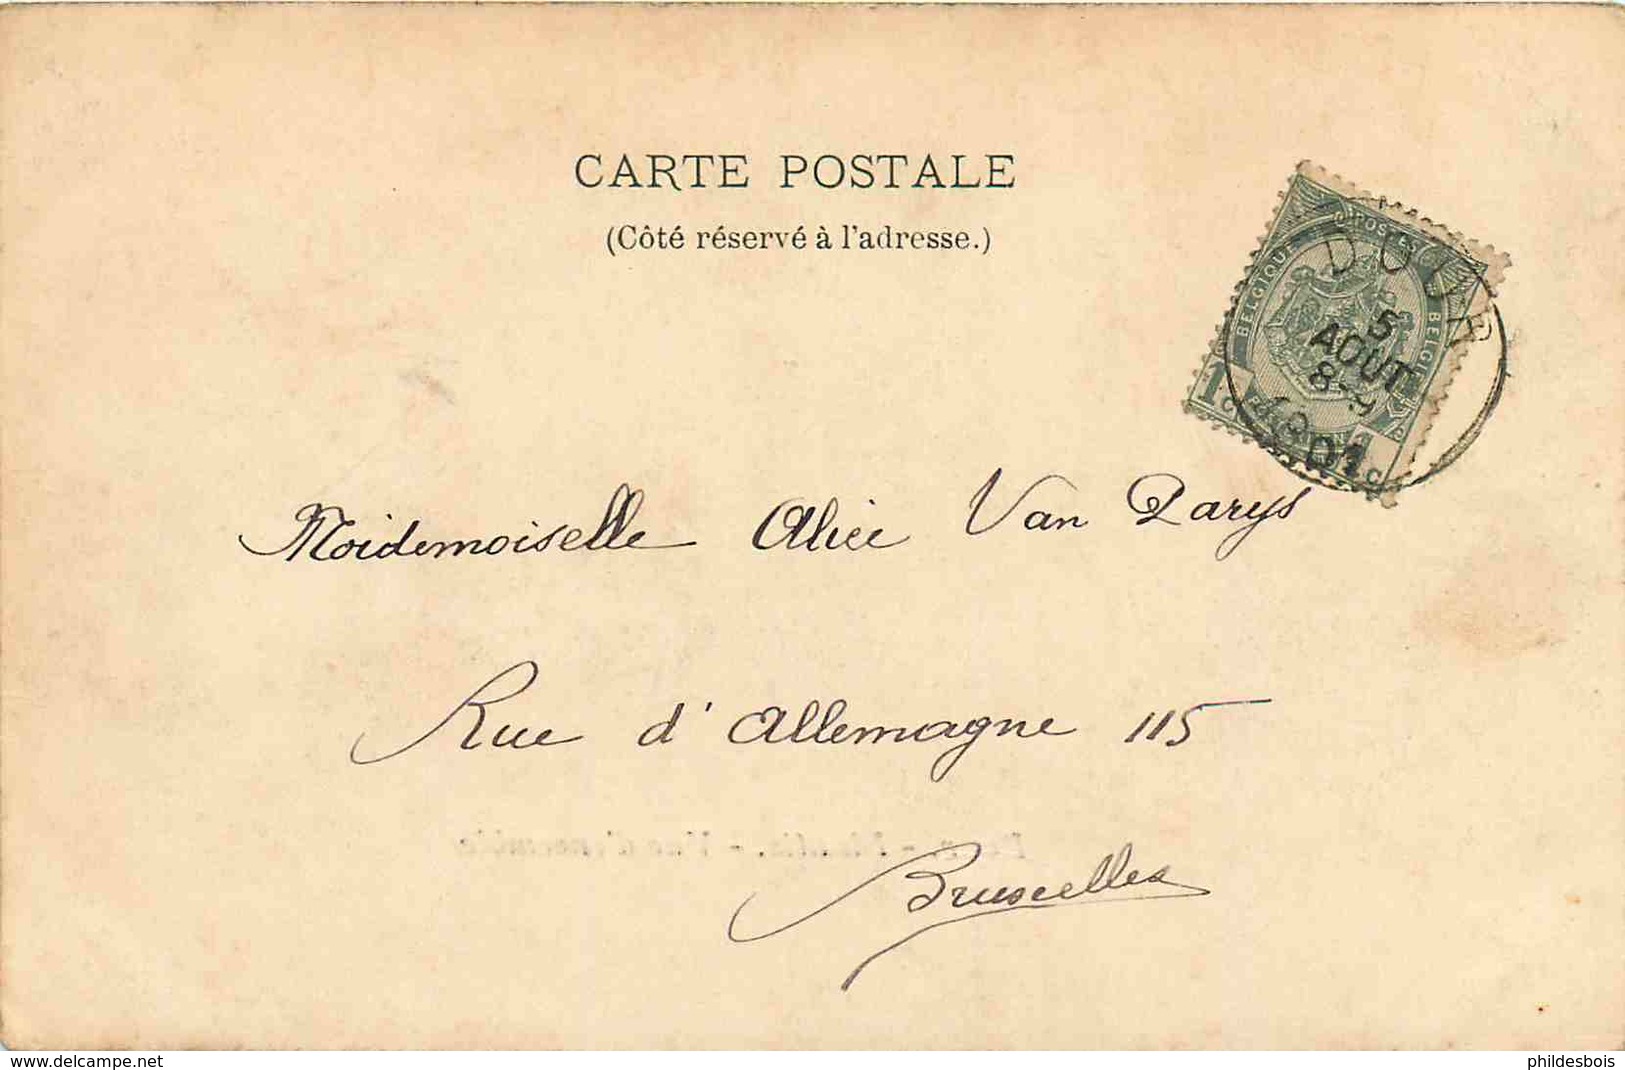 CARTE POSTALE
(Côté réservé à l'adresse.)
POSTES
BELGIQUE BELGIE
DOUR
5
AOUT
8-9
1901
1 C
1 C
Moidemoiselle Alice Van Parys
Rue d'Allemagne 115
Bruxelles
www.delcampe.net
phildesbois